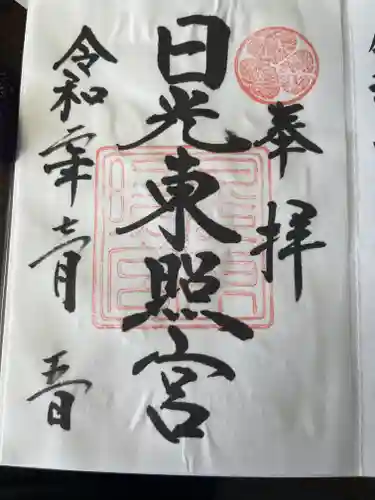 奉拝
日光東照宮
令和六年七月五日